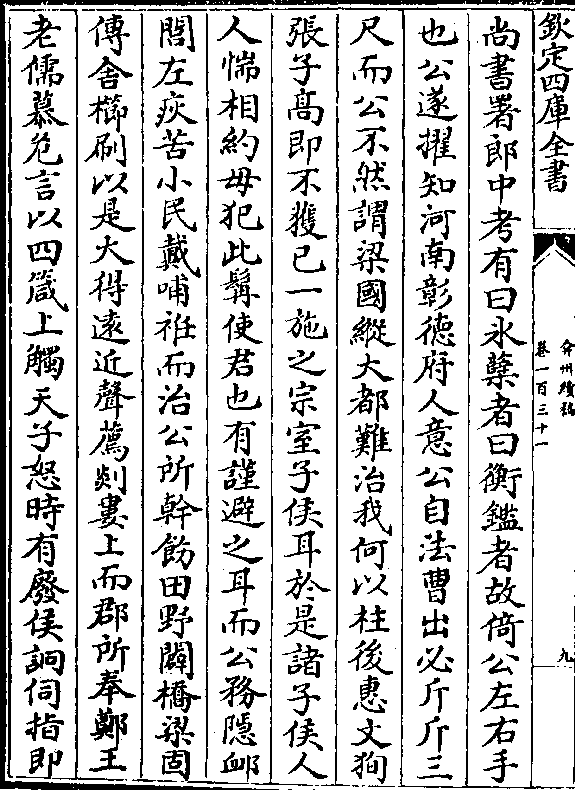 欽定四庫全書
弇州續稿
卷一百三十一
九
尚書署郎中考有曰氷櫱者曰衡鑑者故倚公左右手
也公遂擢知河南彰德府人意公自法曹出必斤斤三
尺而公不然謂梁國縱大都難治我何以柱後惠文狥
張子高即不獲已一施之宗室子侯耳於是諸子侯人
人惴相約毋犯此髯使君也有謹避之耳而公務隱䘏
閭左疾苦小民戴哺袵而治公所幹飭田野闢橋梁固
傳舍櫛刷以是大得遠近聲薦剡婁上而郡所奉鄭王
老儒慕危言以四箴上觸天子怒時有廢侯詗伺指即